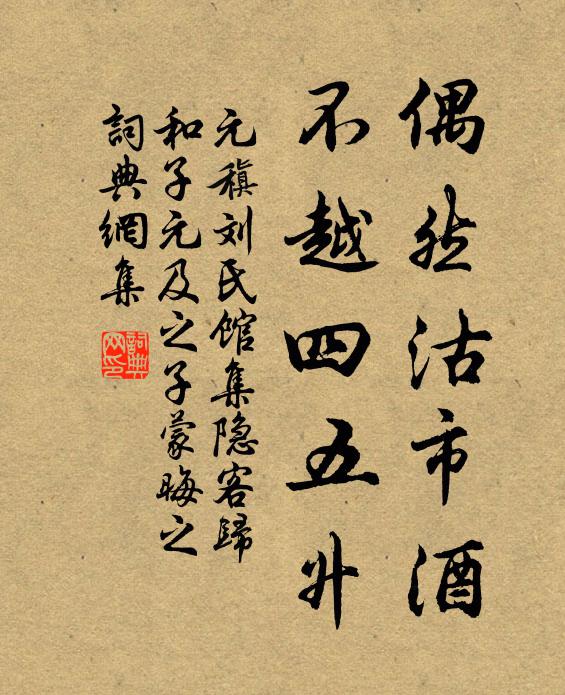 偶然沽市酒
不越四五升
元稹刘氏館集隐客歸
和子元及之子蒙晦之
詞典網集
詞典网印